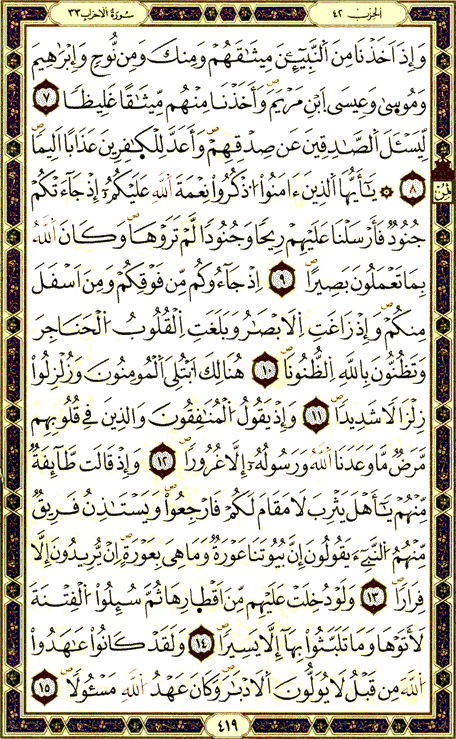 الحزب ٤٢
سورة الأحزاب ٣٣
وَإِذَ اَخَذْنَا مِنَ اَلنَّبِيٓـِٕينَ مِيثَٰقَهُمْ وَمِنكَ وَمِن نُّوحٍ وَإِبْرَٰهِيمَ
وَمُوسَىٰ وَعِيسَى اَبْنِ مَرْيَمَ وَأَخَذْنَا مِنْهُم مِّيثَٰقًا غَلِيظًا ٧
لِّيَسْـَٔلَ اَلصَّٰدِقِينَ عَن صِدْقِهِمْ وَأَعَدَّ لِلْكَٰفِرِينَ عَذَابًا اَلِيمًا
٨ ۞ يَٰٓأَيُّهَا اَلذِينَ ءَامَنُوا اُذْكُرُوا نِعْمَةَ اَللَّهِ عَلَيْكُمُۥٓ إِذْ جَآءَتْكُمْ
جُنُودٌ فَأَرْسَلْنَا عَلَيْهِمْ رِيحًا وَجُنُودًا لَّمْ تَرَوْهَا وَكَانَ اَللَّهُ
بِمَا تَعْمَلُونَ بَصِيرًا ٩ اِذْ جَآءُوكُم مِّن فَوْقِكُمْ وَمِنَ اَسْفَلَ
مِنكُمْ وَإِذْ زَاغَتِ اِلَابْصَٰرُ وَبَلَغَتِ اِلْقُلُوبُ اُلْحَنَاجِرَ
وَتَظُنُّونَ بِاللَّهِ اِلظُّنُونَا ١٠ هُنَالِكَ اَبْتُلِىَ اَلْمُومِنُونَ وَزُلْزِلُوا
زِلْزَالًا شَدِيدًا ١١ وَإِذْ يَقُولُ اُلْمُنَٰفِقُونَ وَالذِينَ فِى قُلُوبِهِم
مَّرَضٌ مَّا وَعَدَنَا اَللَّهُ وَرَسُولُهُۥٓ إِلَّا غُرُورًا ١٢ وَإِذْ قَالَت طَّآئِفَةٌ
مِّنْهُمْ يَٰٓأَهْلَ يَثْرِبَ لَا مَقَامَ لَكُمْ فَارْجِعُوا وَيَسْتَٰذِنُ فَرِيقٌ
مِّنْهُمُ اُلنَّبِىٓءَ يَقُولُونَ إِنَّ بُيُوتَنَا عَوْرَةٌ وَمَا هِىَ بِعَوْرَةٍ اِنْ يُّرِيدُونَ إِلَّا
فِرَارًا ١٣ وَلَوْ دُخِلَتْ عَلَيْهِم مِّنَ اَقْطَارِهَا ثُمَّ سُئِلُوا اُلْفِتْنَةَ
لَأَتَوْهَا وَمَا تَلَبَّثُوا بِهَآ إِلَّا يَسِيرًا ١٤ وَلَقَدْ كَانُوا عَٰهَدُوا
اُللَّهَ مِن قَبْلُ لَا يُوَلُّونَ اَلَادْبَٰرَ وَكَانَ عَهْدُ اُللَّهِ مَسْـُٔولًا ١٥
٤١٩